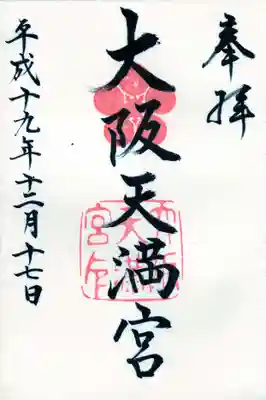 奉拝
大阪天満宮
平成十九年十二月十七日